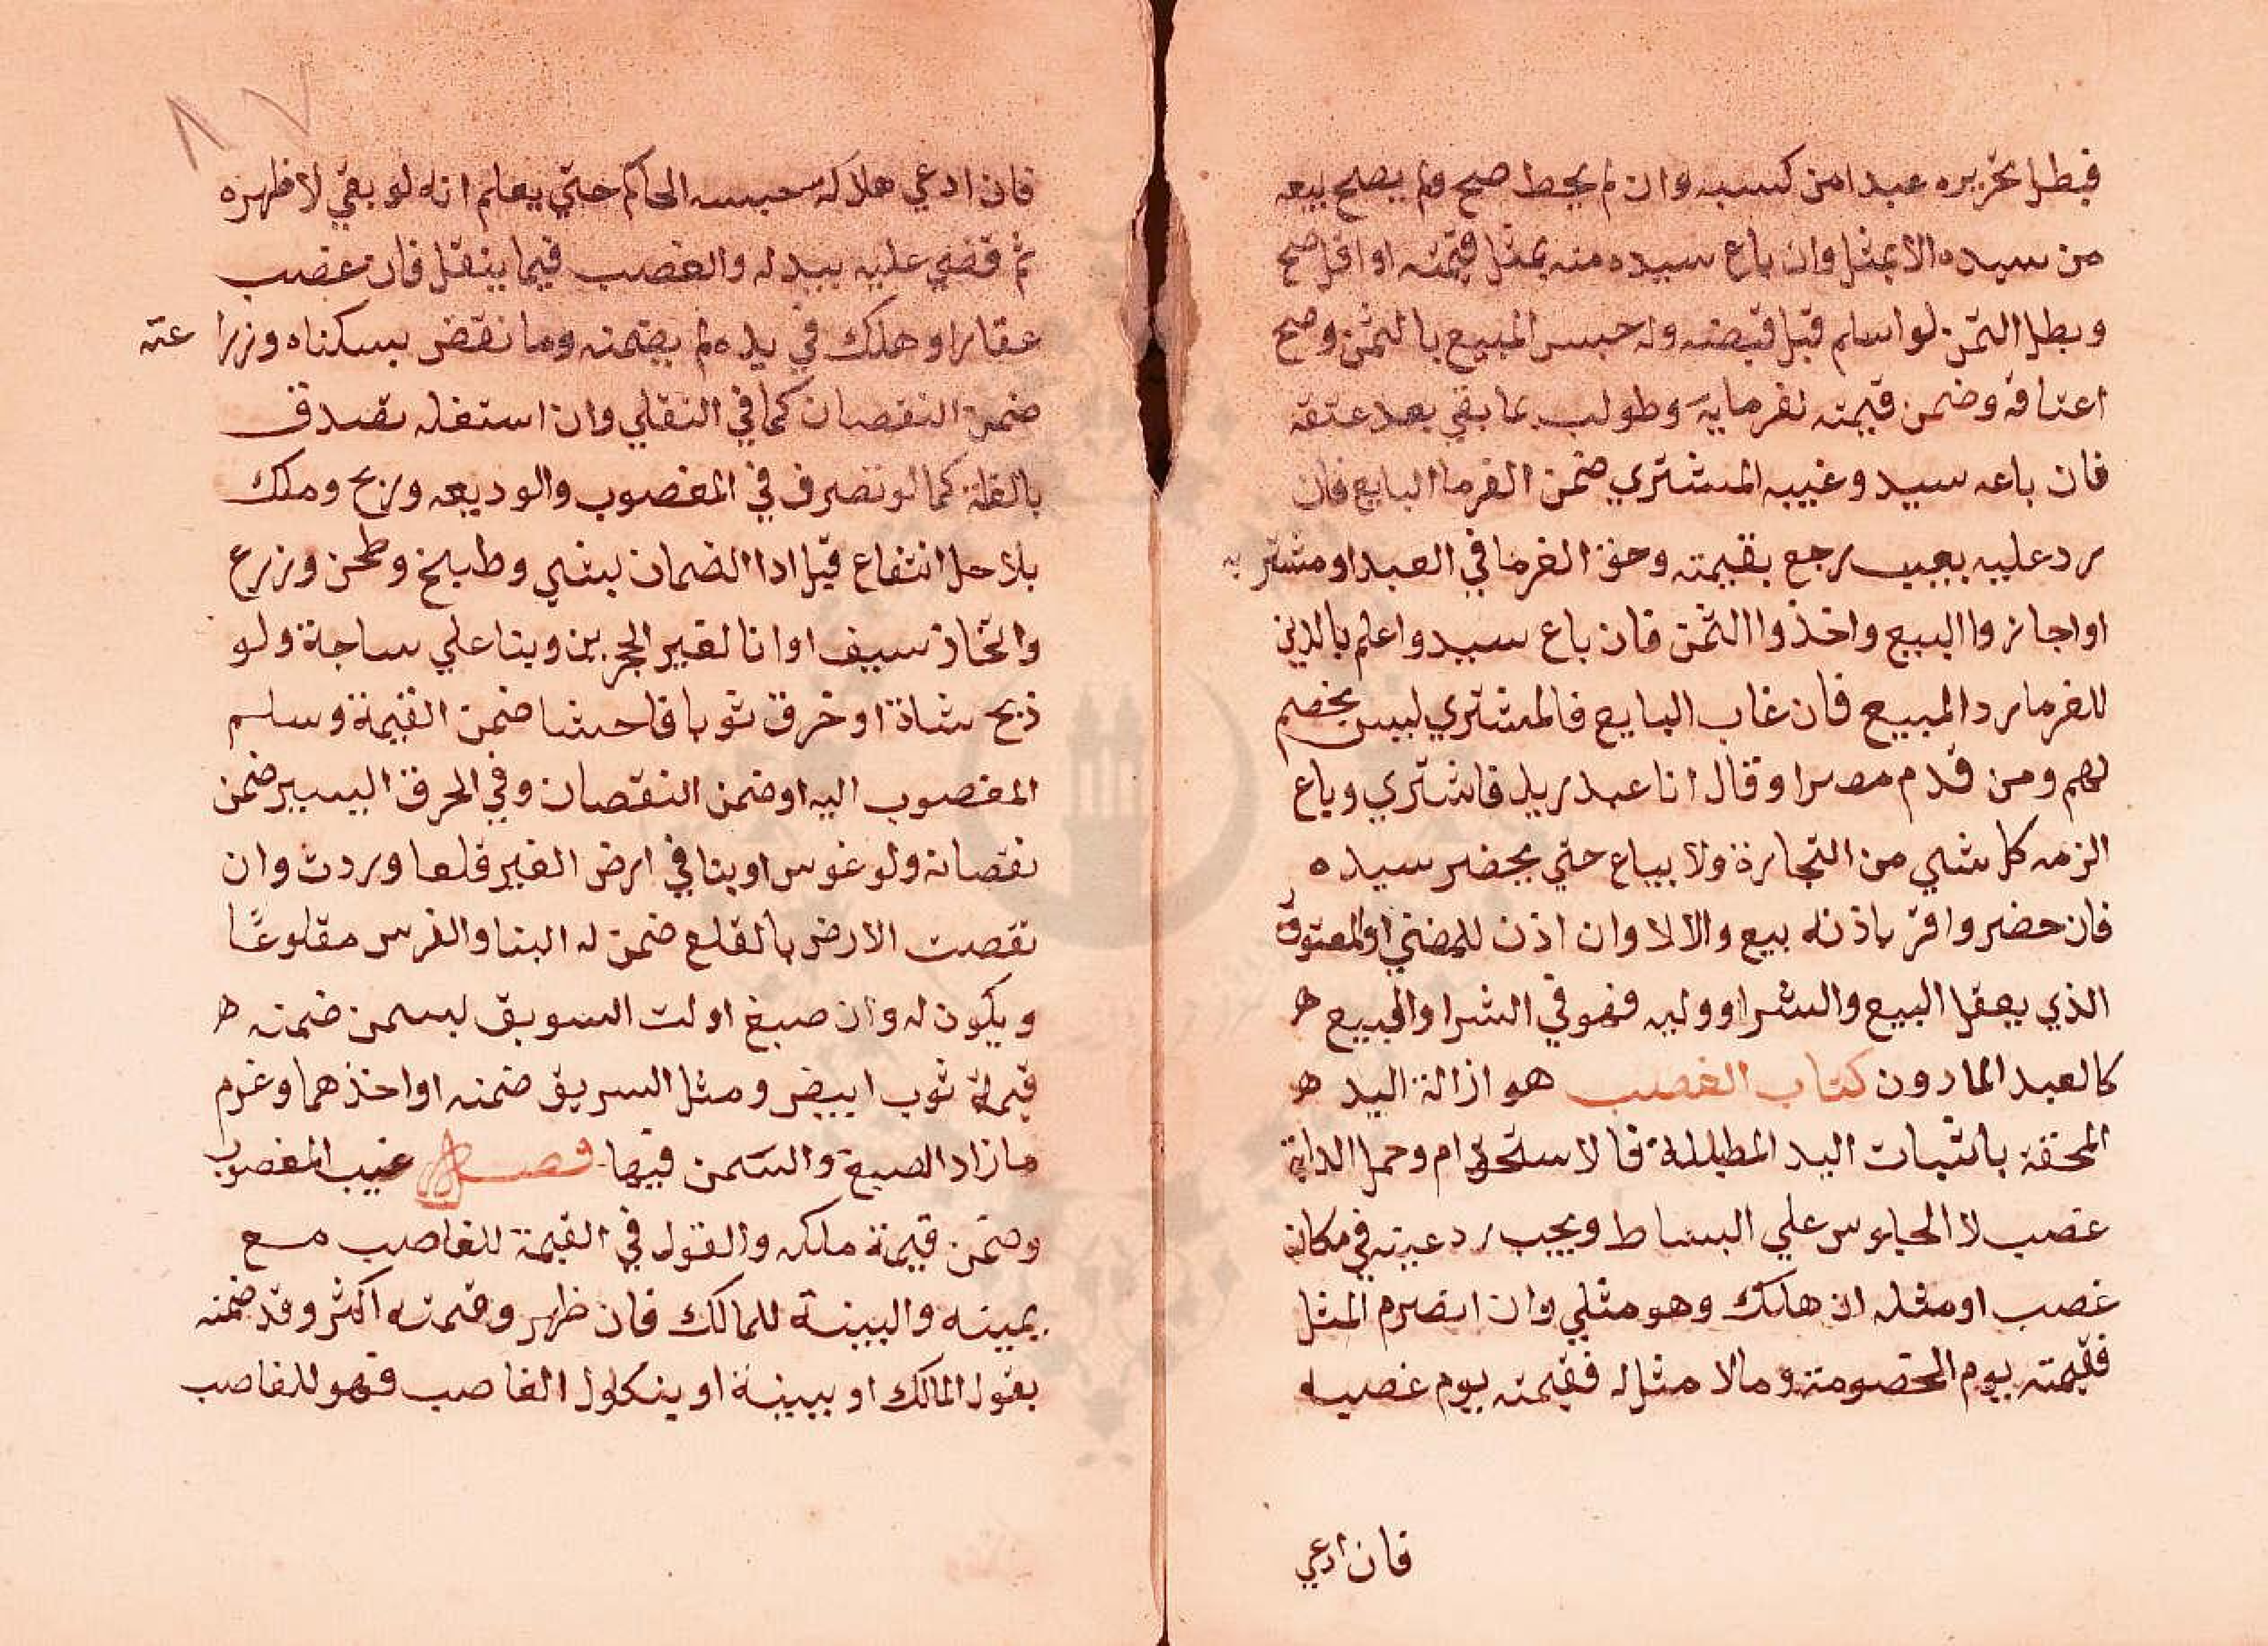 فبطل تحريره عبدا من كسبه وان لم يحط صح ولم يصح بيعه
من سيده الا بمثل وان باع سيده منه بمثل قيمته او اقل صح
وبطل الثمن لو اسلم قبل قبضه وله حبس المبيع بالثمن وصح
اعتاقه وضمن قيمته لغرمايه وطولب بما بقي بعد عتقه
فان باعه سيد وغيبه المشتري ضمن الغرما البايع فان
رد عليه بعيب رجع بقيمته وحق الغرما في العبد او مشتريه
او اجازوا البيع واخذوا الثمن فان باع سيد واعلم بالدين
للغرما رد المبيع فان غاب البايع فالمشتري ليس بخصم
لهم ومن قدم مصرا وقال انا عبد زيد فاشتري وباع
الزمه كل شي من التجارة ولا يباع حتي يحضر سيده
فان حضر واقر باذنه بيع والا لا وان اذن للصبي او المعتوق
الذي يعقل البيع والشرا ووليه فهو في الشرا والبيع ه
كالعبد المادون كتاب الغصب هو ازالة اليد ه
المحقة باثبات اليد المطيللة فالاستخدام وحمل الدابة
غصب لا الجلوس علي البساط ويجب رد عينه في مكان
غصب او مثله ان هلك وهو مثلي وان انصرم المثل
فقيمته يوم الخصومة ومالا مثل له فقيمته يوم غصبه
فان ادعي
٨٧
فان ادعي هلاكه حبسه الحاكم حتي يعلم انه لو بقي لاظهره
ثم قضي عليه ببدله والغصب فيما ينقل فان غصب
عقارا وهلك في يده لم يضمنه وما نقض بسكناه وزرا عته
ضمن النقصان كما في النقلي وان استغله تصدق
بالغلة كما لو تصرف في المغصوب والوديعه وربح وملك
بلا حل انتفاع قبل ادا الضمان بشي وطبخ وطحن وزرع
واتخاذ سيف او انا لغير الحجرين وبنا علي ساجة ولو
ذبح شاة او خرق ثوبا فاحشا ضمن القيمة وسلم
المغصوب اليه او ضمن النقصان وفي الخرق اليسير ضمن
نقصانه ولو غرس او بنا في ارض الغير قلعا وردت وان
نقصت الارض بالقلع ضمن له البنا والغرس مقلوعًا
ويكون له وان صبغ او لت السويق بسمن ضمنه ه
قيمة ثوب ابيض ومثل السريق ضمنه او اخذهما وغرم
ما زاد الصبغ والسمن فيها فصل غيب المغصوب
وضمن قيمة ملكه والقول في القيمة للغاصب مع
يمينه والبينة للمالك فان ظهر وقيمته اكثر وقد ضمنه
بقول المالك او ببينة او بنكول الغاصب فهو للغاصب